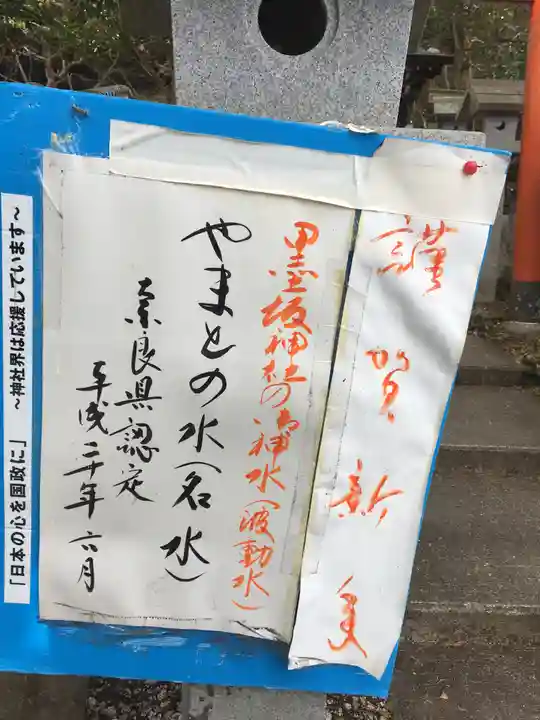 謹賀新年
墨坂神社の御神水(波動水)
やまとの水(名水)
奈良県認定
平成二十年六月
「日本の心を国政に」 〜神社界は応援しています〜